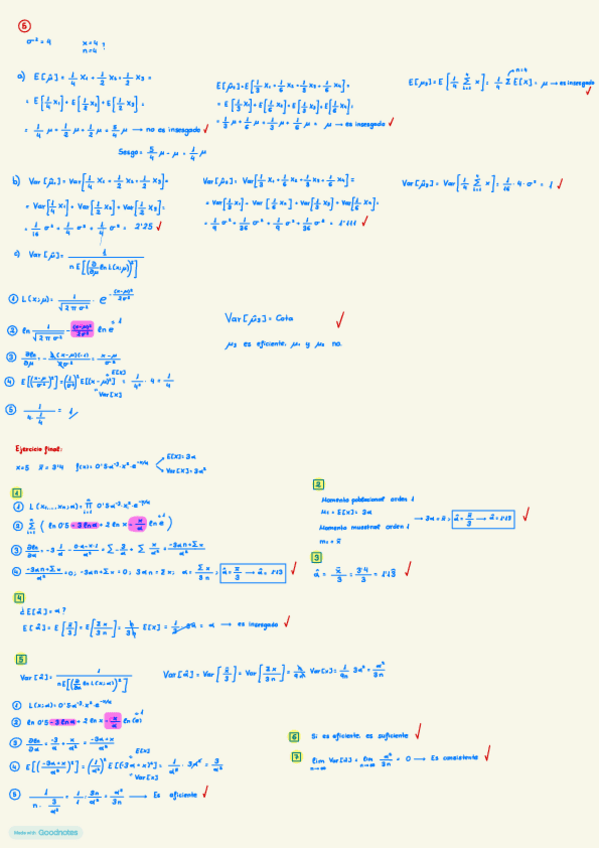 5
σ² = 4
x = 4
n = 4 ?
a) E[μ̂₁] = 1/4 x₁ + 1/2 x₂ + 1/2 x₃ =
= E[1/4 x₁] + E[1/2 x₂] + E[1/2 x₃] =
= 1/4 μ + 1/2 μ + 1/2 μ = 5/4 μ → no es insesgado ✓
Sesgo = 5/4 μ - μ = 1/4 μ
E[μ̂₂] = E[1/3 x₁ + 1/6 x₂ + 1/3 x₃ + 1/6 x₄] =
= E[1/3 x₁] + E[1/6 x₂] + E[1/3 x₃] + E[1/6 x₄] =
= 1/3 μ + 1/6 μ + 1/3 μ + 1/6 μ = μ → es insesgado ✓
E[μ̂₃] = E[1/4 Σ x] = 1/4 Σ E[x] = μ → es insesgado ✓
n=4
b) Var[μ̂₁] = Var[1/4 x₁ + 1/2 x₂ + 1/2 x₃] =
= Var[1/4 x₁] + Var[1/2 x₂] + Var[1/2 x₃] =
= 1/16 σ² + 1/4 σ² + 1/4 σ² = 2'25 ✓
Var[μ̂₂] = Var[1/3 x₁ + 1/6 x₂ + 1/3 x₃ + 1/6 x₄] =
= Var[1/3 x₁] + Var[1/6 x₂] + Var[1/3 x₃] + Var[1/6 x₄] =
= 1/9 σ² + 1/36 σ² + 1/9 σ² + 1/36 σ² = 1'111 ✓
Var[μ̂₃] = Var[1/4 Σ x] = 1/16 · 4 · σ² = 1 ✓
c) Var[μ̂] = 1 / n E[(∂/∂μ ln L(x;μ))²]
① L(x;μ) = 1/√(2πσ²) · e^-(x-μ)²/2σ²
② ln 1/√(2πσ²) - (x-μ)²/2σ² ln e 1
③ ∂ln/∂μ = - 2(x-μ)(-1)/2σ² = x-μ/σ²
④ E[(x-μ/σ²)²] = (1/σ²)² E[(x-μ)²] = 1/4² · 4 = 1/4
E[x]
Var[x]
⑤ 1/(4 · 1/4) = 1
Var[μ̂₃] = Cota ✓
μ₃ es eficiente, μ₁ y μ₂ no.
Ejercicio final:
n=5 x̄ = 3'4 f(x) = 0'5 α⁻³ · x² · e^-x/α
E[x] = 3α
Var[x] = 3α²
1
① L(x₁,...xₙ;α) = π 0'5 α⁻³ · x² · e^-x/α
② Σ ( ln 0'5 - 3 ln α + 2 ln x - x/α ln e ) 1
④ -3αn + Σx / α² = 0; -3αn + Σx = 0; 3αn = Σx; α = Σx/3n; α̂ = x̄/3 → α̂ = 1'13 ✓
2
Momento poblacional orden 1
M₁ = E[x] = 3α
Momento muestral orden 1
m₁ = x̄
→ 3α = x̄; α̂ = x̄/3 → α̂ = 1'13 ✓
3
α̂ = x̄/3 = 3'4/3 = 1'13 ✓
4
¿E[α̂] = α?
E[α̂] = E[x̄/3] = E[Σx/3n] = n/3n E[x] = 1/3 · 3α = α → es insesgado ✓
5
Var[α̂] = 1 / nE[(∂/∂α ln L(x;α))²]
Var[α̂] = Var[x̄/3] = Var[Σx/3n] = n/9n² Var[x] = 1/9n 3α² = α²/3n
① L(x;α) = 0'5 α⁻³ · x² · e^-x/α
② ln 0'5 - 3 ln α + 2 ln x - x/α ln(e) 1
③ ∂ln/∂α = -3/α + x/α² = -3α + x / α²
④ E[(-3α + x / α²)²] = (1/α²)² E[(-3α + x)²] = 1/α⁴ · 3α² = 3/α²
E[x]
Var[x]
⑤ 1/(n · 3/α²) = 1/1 : 3n/α² = α²/3n → Es eficiente ✓
6 Si es eficiente, es suficiente ✓
7 lim Var[α̂] = lim α²/3n = 0 → Es consistente ✓
n→∞ n→∞
Made with Goodnotes